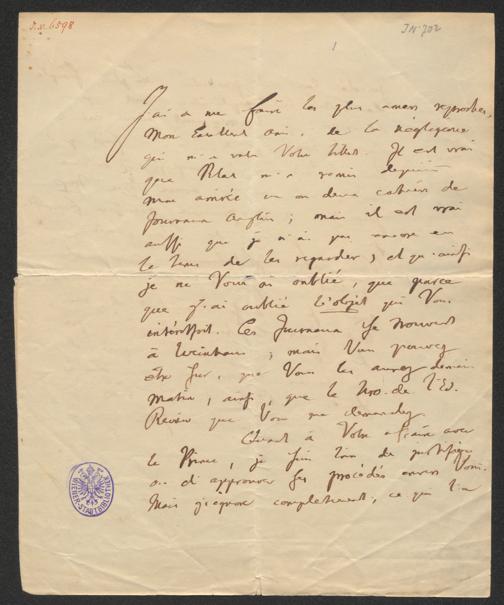 J.N. 6598
J.N. 702
1
J'ai à me faire les plus amers reproches,
Mon Excellent ami, de la négligence
qui m'a valu Votre billet. Il est vrai
que Pilat m'a remis depuis
mon arrivée un ou deux cahiers de
Journaux Anglais; mais il est vrai
aussi que je n'ai pas encore eu
le tems de les regarder; et qu'ainsi
je ne Vous ai oublié, que parce
que j'ai oublié l'objet qui Vous
intéressoit. Ces Journaux se trouvent
à Weinhaus; mais Vous pouvez
être sur, que Vous les aurez demain
matin, ainsi que le Nro. de l'Ed.
Review que Vous me demandez.
Quant à Votre affaire avec
le Prince, je suis loin de justifier
ou d'approuver ses procédés envers Vous.
Mais j'ignore complettement, ce qui l'a
WIENER STADTBIBLIOTHEK